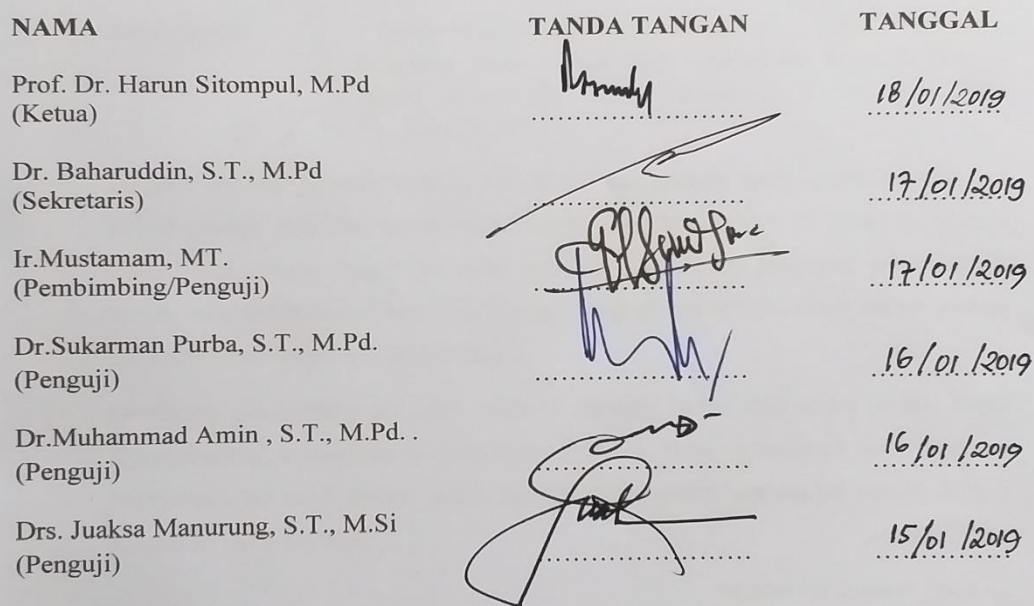 NAMA TANDA TANGAN TANGGAL
Prof. Dr. Harun Sitompul, M.Pd
(Ketua) 18/01/2019
Dr. Baharuddin, S.T., M.Pd
(Sekretaris) 17/01/2019
Ir.Mustamam, MT.
(Pembimbing/Penguji) 17/01/2019
Dr.Sukarman Purba, S.T., M.Pd.
(Penguji) 16/01/2019
Dr.Muhammad Amin , S.T., M.Pd. .
(Penguji) 16/01/2019
Drs. Juaksa Manurung, S.T., M.Si
(Penguji) 15/01/2019